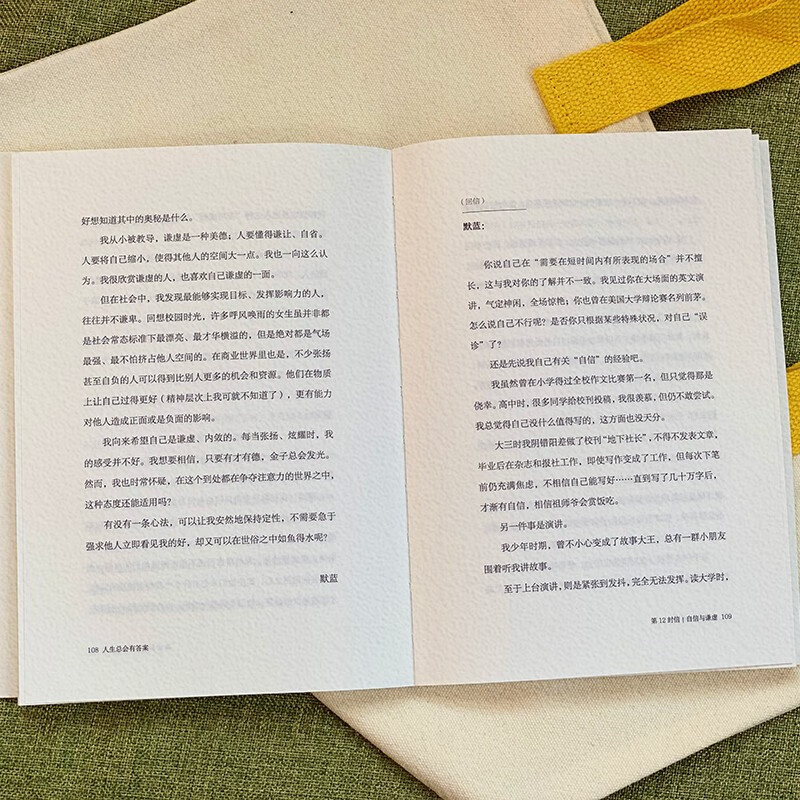 好想知道其中的奥秘是什么。
我从小被教导，谦虚是一种美德；人要懂得谦让、自省。
人要将自己缩小，使得其他人的空间大一点。我也一向这么认
为。我很欣赏谦虚的人，也喜欢自己谦虚的一面。
但在社会中，我发现最能够实现目标、发挥影响力的人，
往往并不谦卑。回想校园时光，许多呼风唤雨的女生虽并非都
是社会常态标准下最漂亮、最才华横溢的，但是绝对都是气场
最强、最不怕挤占他人空间的。在商业世界里也是，不少张扬
甚至自负的人可以得到比别人更多的机会和资源。他们在物质
上让自己过得更好（精神层次上我可就不知道了），更有能力
对他人造成正面或是负面的影响。
我向来希望自己是谦虚、内敛的。每当张扬、炫耀时，我
的感受并不好。我想要相信，只要有才有德，金子总会发光。
然而，我也时常怀疑，在这个到处都在争夺注意力的世界之中，
这种态度还能适用吗？
有没有一条心法，可以让我安然地保持定性，不需要急于
强求他人立即看见我的好，却又可以在世俗之中如鱼得水呢？
默蓝
108 人生总会有答案
（回信）
默蓝：
你说自己在“需要在短时间内有所表现的场合”并不擅
长，这与我对你的了解并不一致。我见过你在大场面的英文演
讲，气定神闲，全场惊艳；你也曾在美国大学辩论赛名列前茅。
怎么说自己不行呢？是否你只根据某些特殊状况，对自己“误
诊”了？
还是先说我自己有关“自信”的经验吧。
我虽然曾在小学得过全校作文比赛第一名，但只觉得那是
侥幸。高中时，很多同学给校刊投稿，我很羡慕，但仍不敢尝试。
我总觉得自己没什么值得写的，这方面也没天分。
大三时我阴错阳差做了校刊“地下社长”，不得不发表文章，
毕业后在杂志和报社工作，即使写作变成了工作，但每次下笔
前仍充满焦虑，不相信自己能写好……直到写了几十万字后，
才渐有自信，相信祖师爷会赏饭吃。
另一件事是演讲。
我少年时期，曾不小心变成了故事大王，总有一群小朋友
围着听我讲故事。
至于上台演讲，则是紧张到发抖，完全无法发挥。读大学时，
第 12 封信 | 自信与谦虚 109